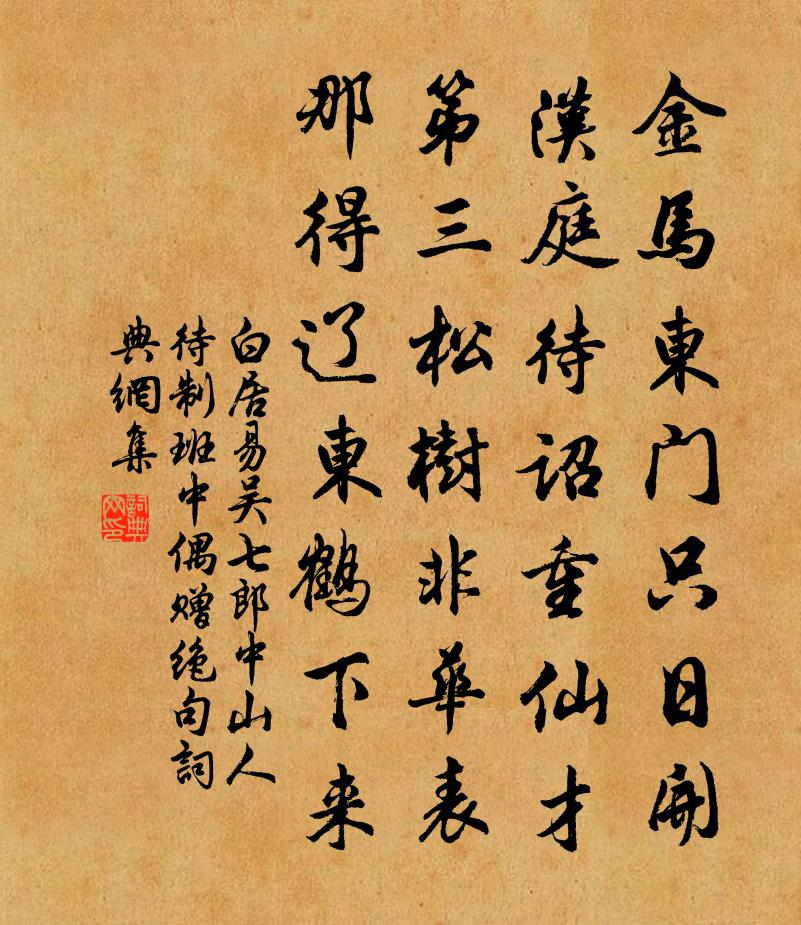 金馬東门只日開
漢庭待诏重仙才
第三松樹非華表
那得辽東鹤下来
白居易吴七郎中山人
待制班中偶赠绝句詞
典網集
詞典
网印